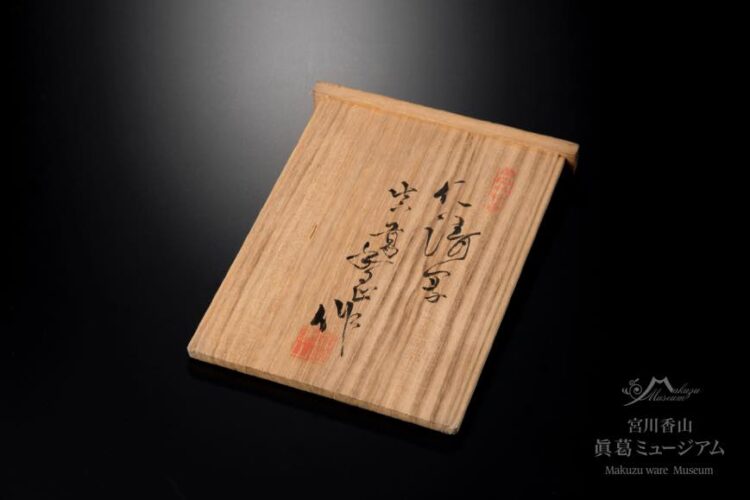 仁清写
真葛香山作
Makuzu
Museum
宮川香山
眞葛ミュージアム
Makuzu ware Museum